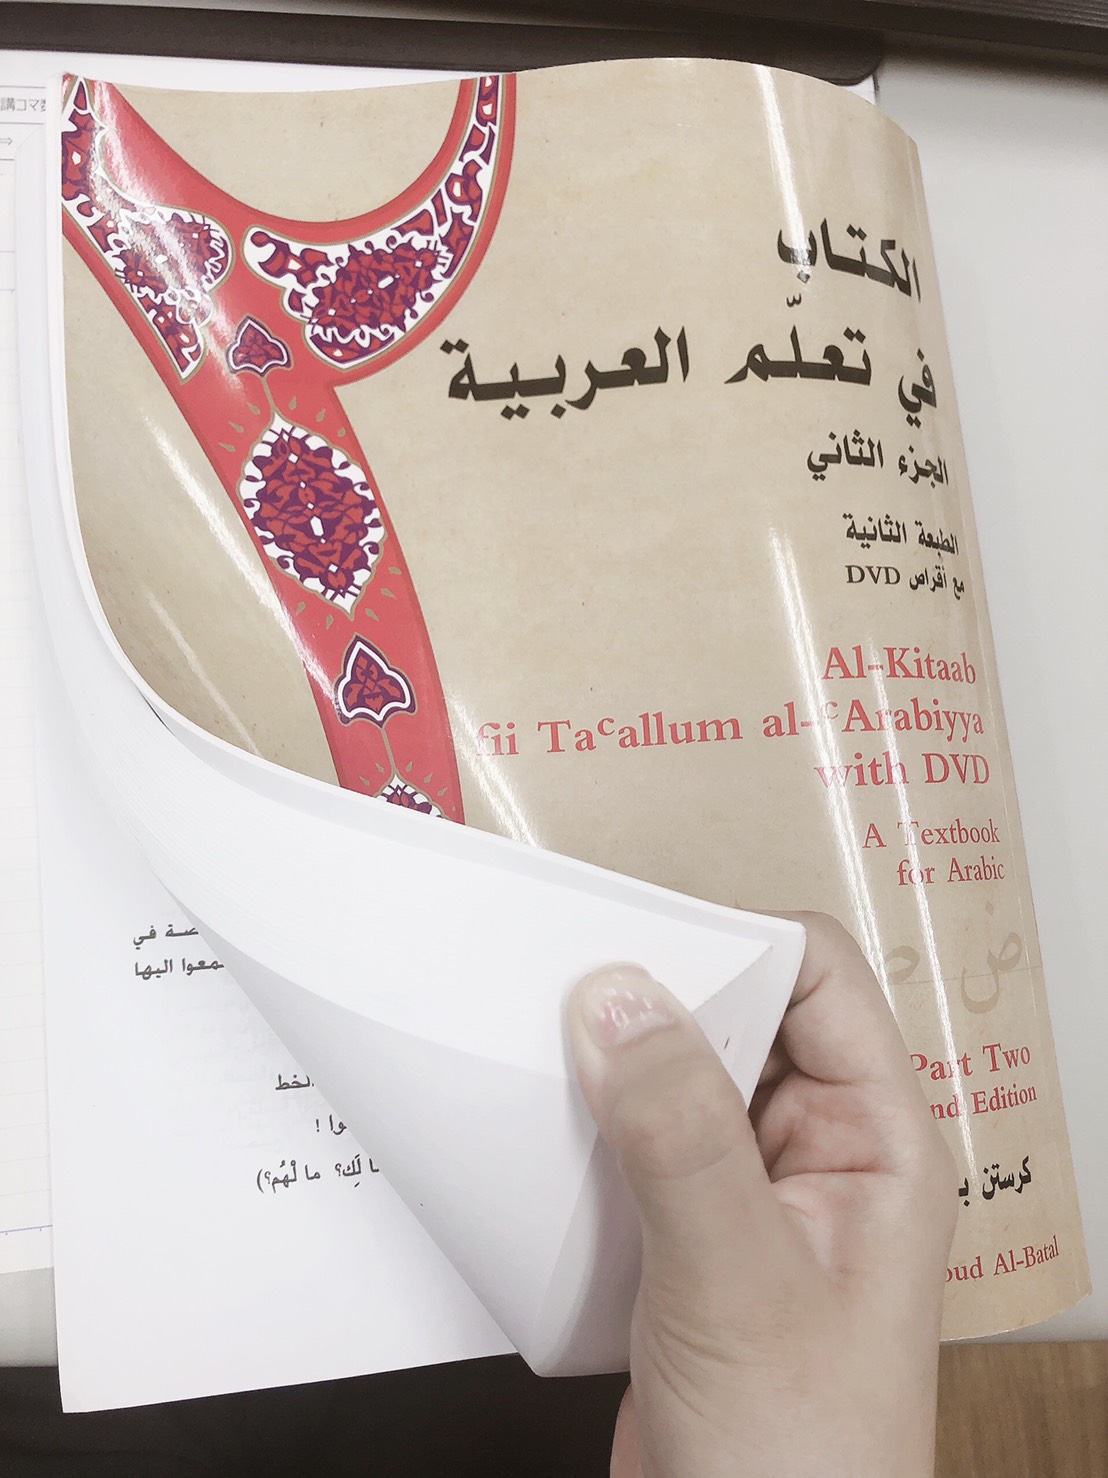 講コマ
الكتاب
في تعلّم العربية
الجزء الثاني
الطبعة الثانية
مع أقراص DVD
Al-Kitaab
fii Taᶜallum al-ᶜArabiyya
with DVD
A Textbook
for Arabic
ض ص
Part Two
Edition
كرستن
Al-Batal
في
اليها
!
ما لْهُم؟)